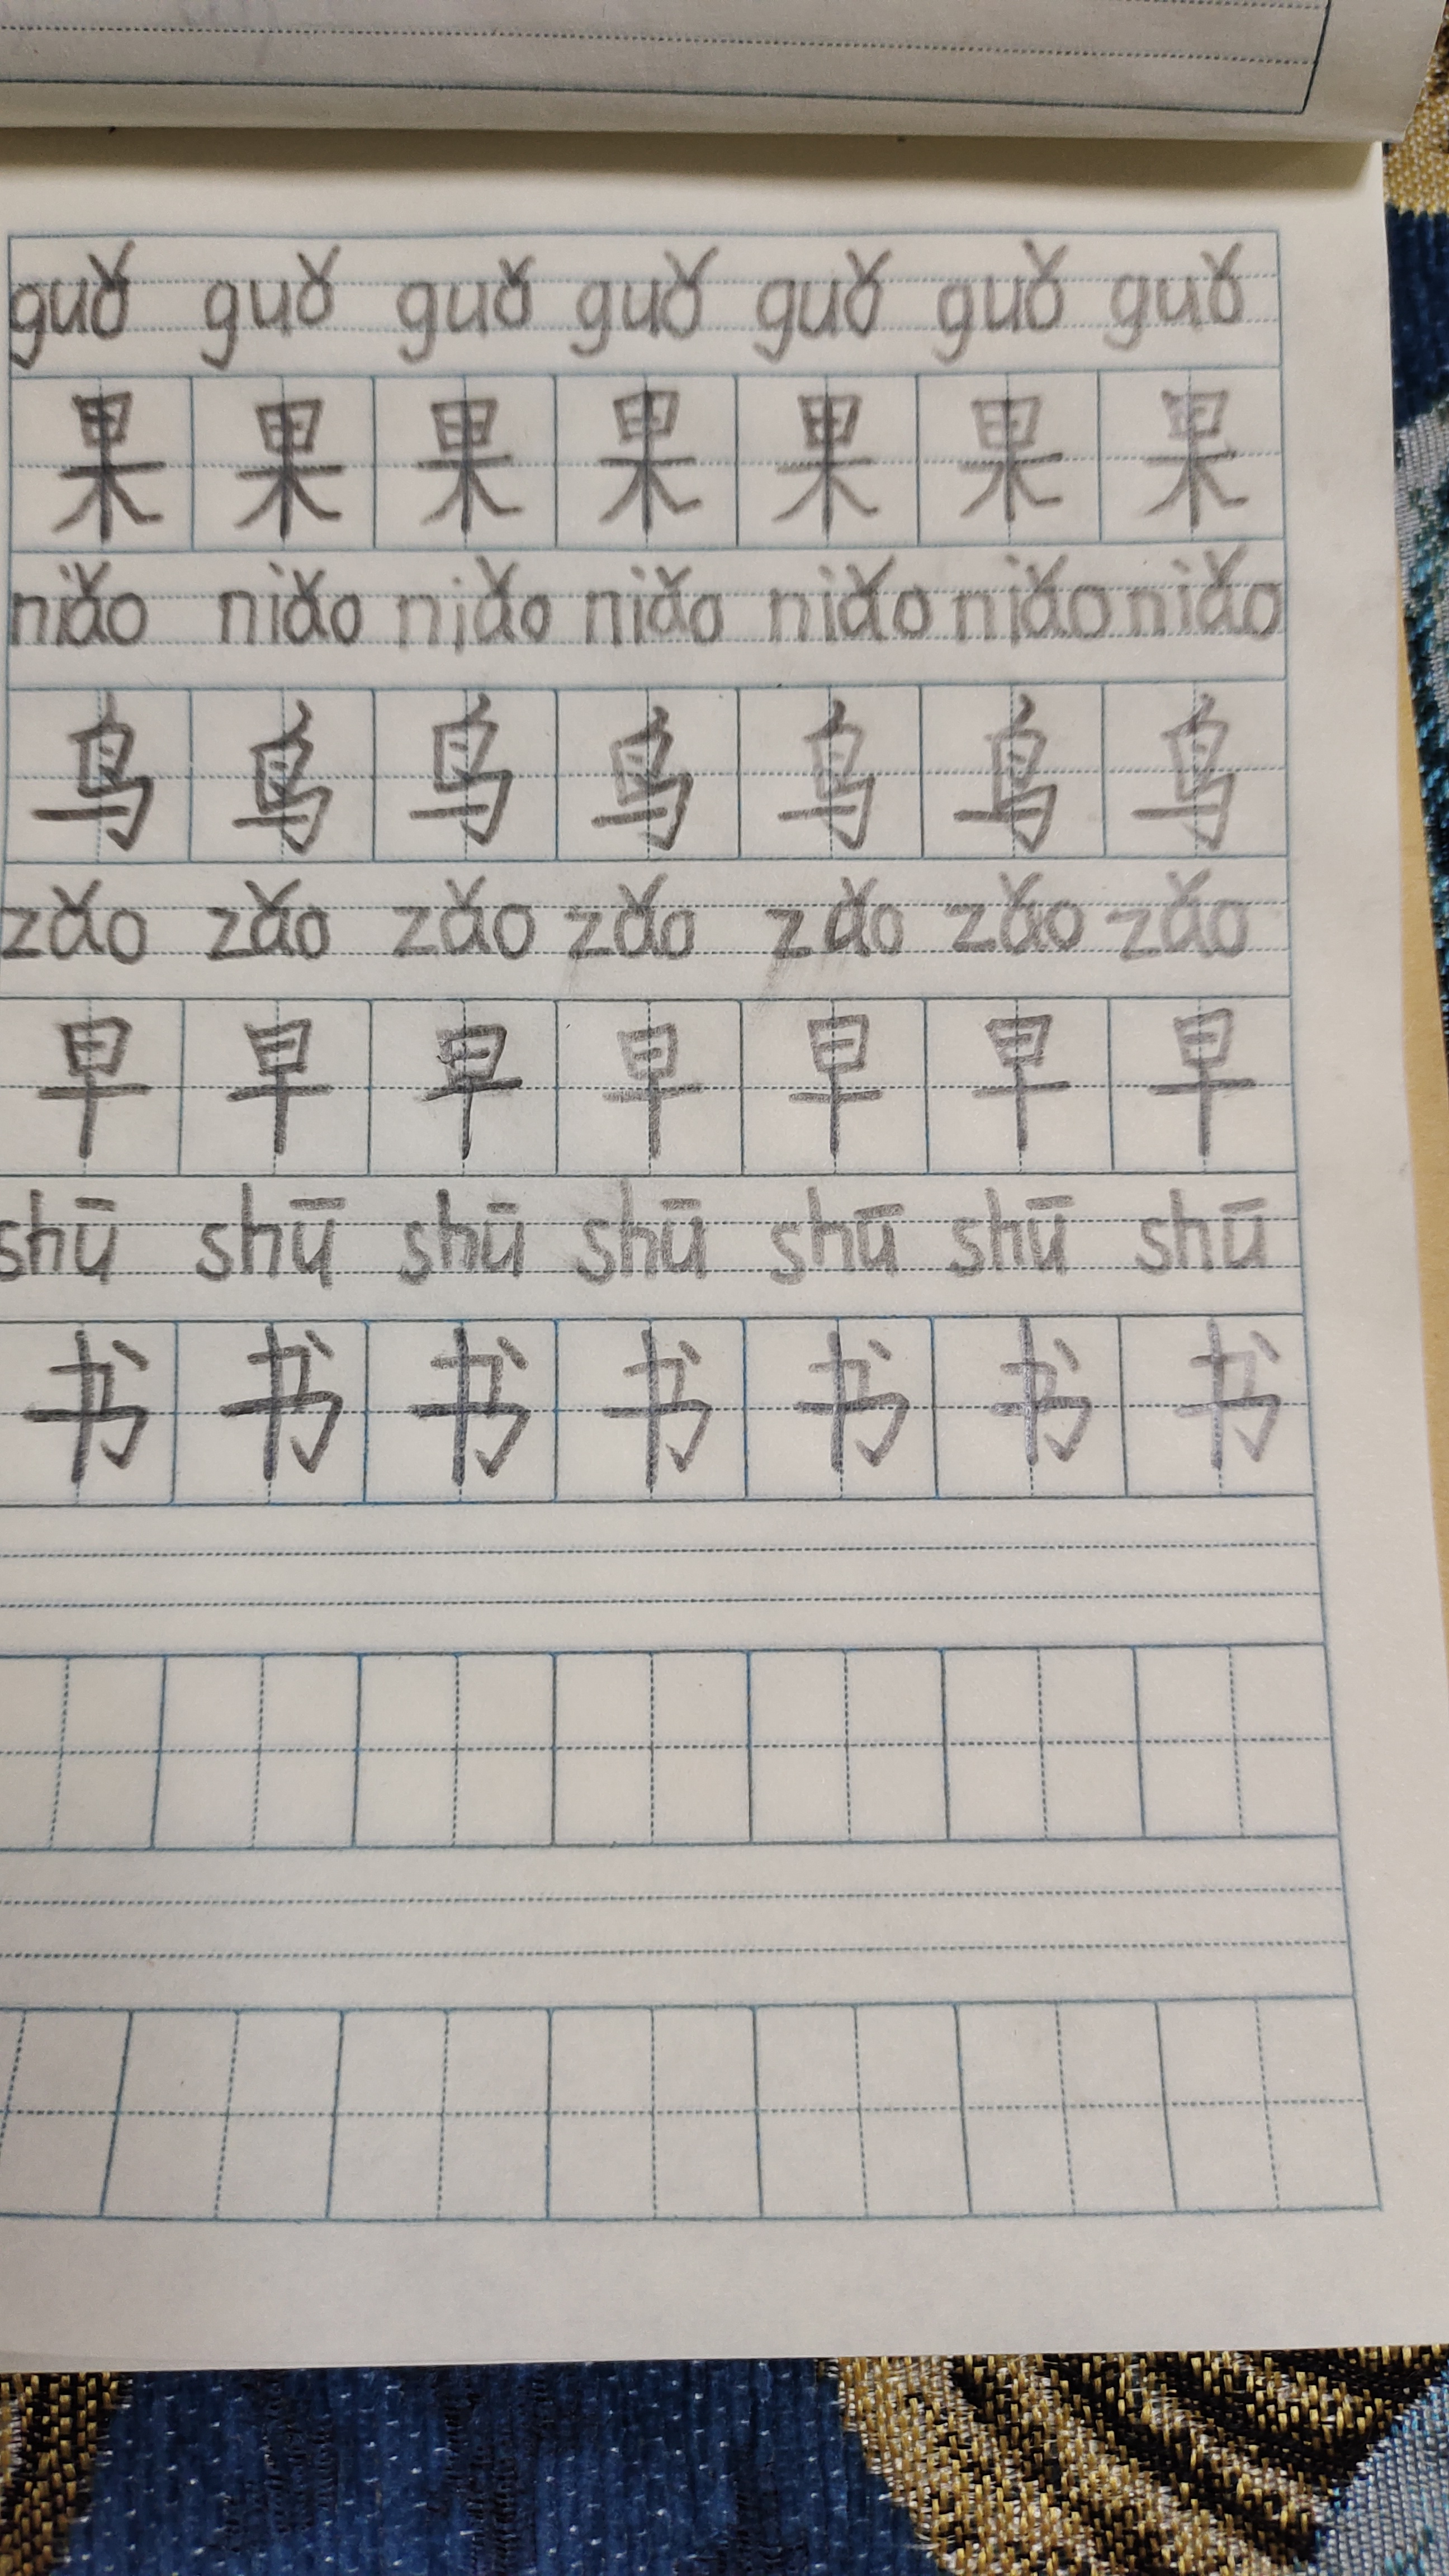 guǒ guǒ guǒ guǒ guǒ guǒ guǒ
果 果 果 果 果 果 果
niǎo niǎo niǎo niǎo niǎo niǎo niǎo
鸟 鸟 鸟 鸟 鸟 鸟 鸟
zǎo zǎo zǎo zǎo zǎo zǎo zǎo
早 早 早 早 早 早 早
shū shū shū shū shū shū shū
书 书 书 书 书 书 书